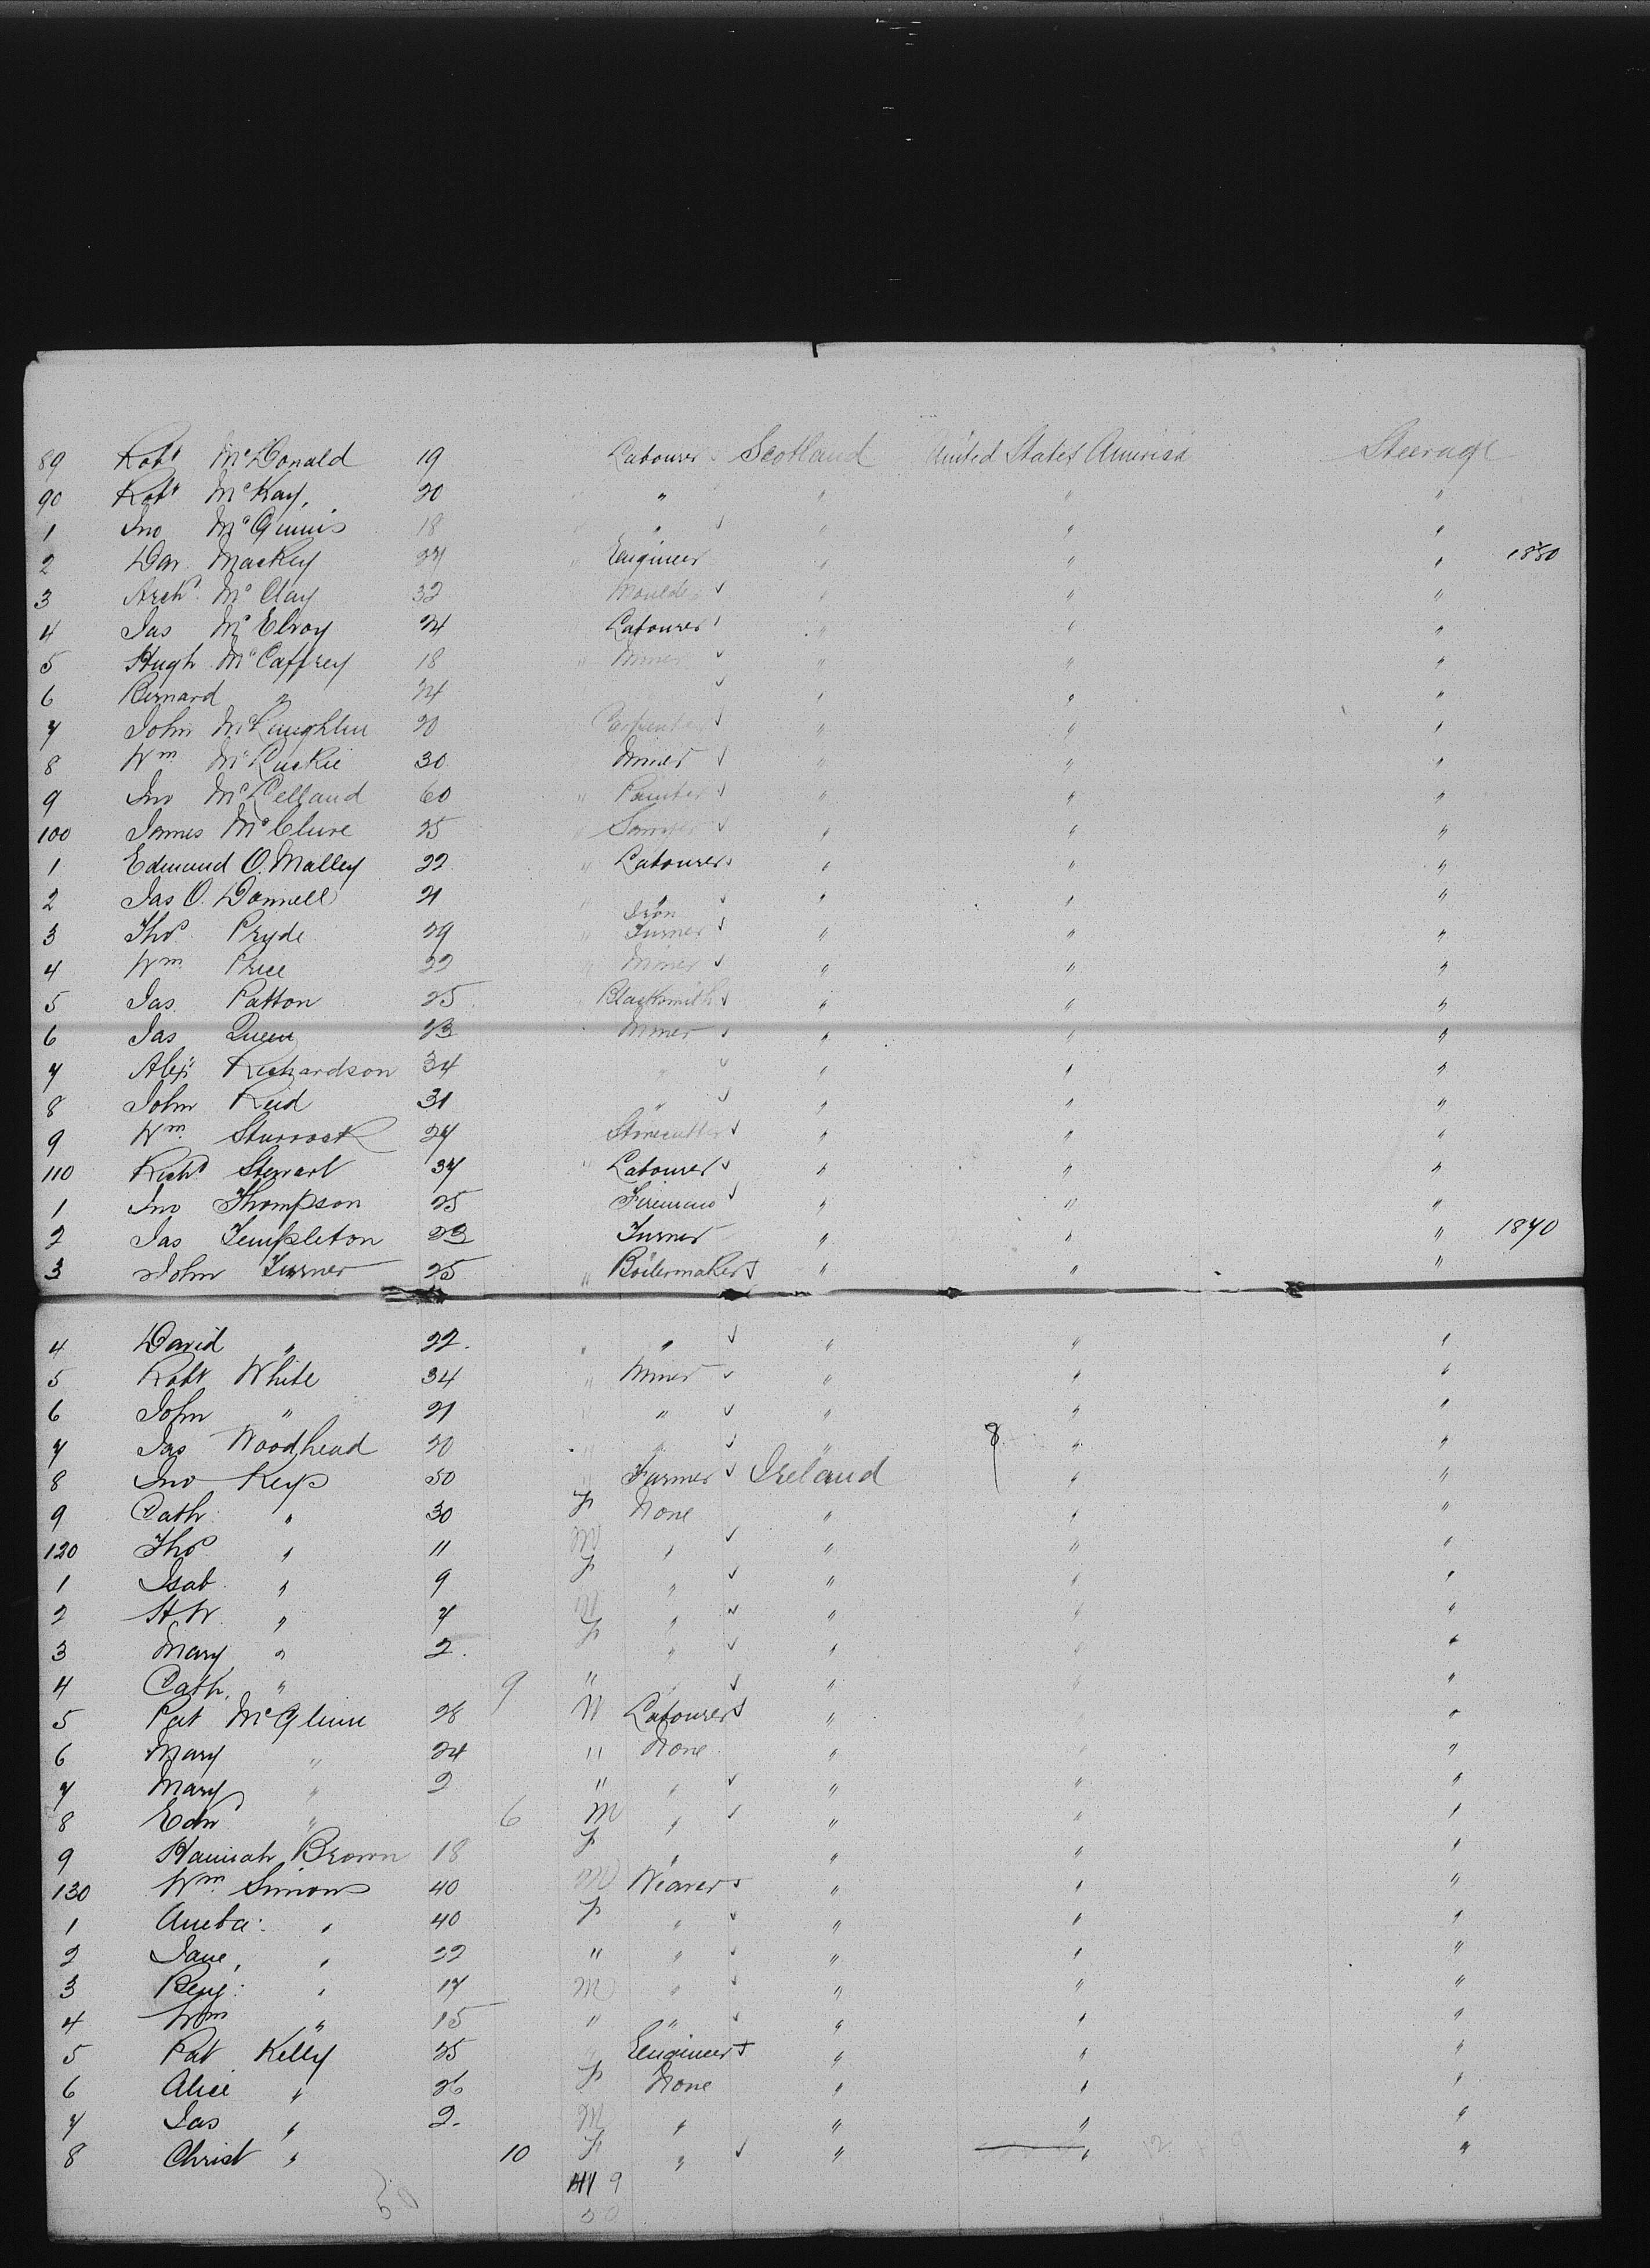 89 Robt McDonald 19 Labourer Scotland United States America Steerage
90 Robt McKay, 20 " " " "
1 Jno McGinnis 18 " " " "
2 Dan Mackey 24 " Engineer " " " 1850
3 Archd McClay 32 Moulder " " "
4 Jas McElroy 24 Labourer " " "
5 Hugh McCaffrey 18 " Miner " " "
6 Bernard " 24 " " "
7 John McLaughlin 20 Carpenter " " "
8 Wm McLuckie 30 Miner " " "
9 Jno McLelland 60 " Painter " " "
100 James McClure 25 " Sawyer " " "
1 Edmund O. Malley 22 " Labourer " " "
2 Jas O. Donnell 21 " " " " "
3 Thos Pryde 29 " Iron Turner " " "
4 Wm Price 22 " Miner " " "
5 Jas. Patton 25 Blacksmith " " "
6 Jas Queen 23 Miner " " "
7 Alexr Richardson 34 " " " "
8 John Reid 31 " " " "
9 Wm Sturrock 24 Stonecutter " " "
110 Richd Stewart 37 " Labourer " " "
1 Jno Thompson 25 Fireman " " "
2 Jas Templeton 23 Turner " " " 1870
3 John Turner 25 " Boilermaker " " "
4 David " 22. " " " " "
5 Robt White 34 " Miner " " "
6 John " 21 " " " " "
7 Jas Woodhead 20 " " " " "
8 Jno Keys 50 " Farmer Ireland " "
9 Cath: " 30 F None " " "
120 Thos " 11 M " " " "
1 Isab. " 9 F " " " "
2 H.W. " 7 M " " " "
3 Mary " 2. F " " " "
4 Cath, " 9 " " " " "
5 Pat McGlinn 28 M Labourer " "
6 Mary " 24 " None " "
7 Mary " 2 " " " " "
8 Edw " 6 M " " " "
9 Hannah Brown 18 F " " " "
130 Wm Simons 40 M Weaver " " "
1 " 40 F " " " "
2 Jane, " 22 " " " " "
3 Benj: " 17 M " " " "
4 Wm " 15 " " " " "
5 Pat Kelly 25 " Engineer " " "
6 Alice " 26 F None " " "
7 Jas " 2. M " " " "
8 Christ " 10 F " " " "
41 9
50 50